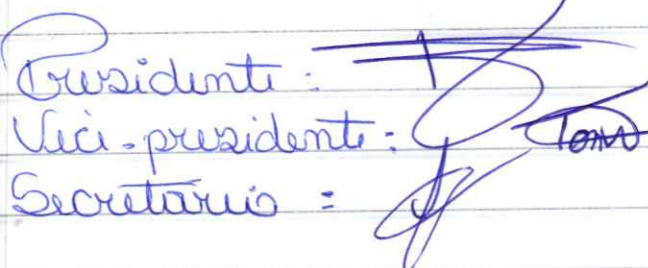 Presidente:
Vice-presidente:
Secretário: